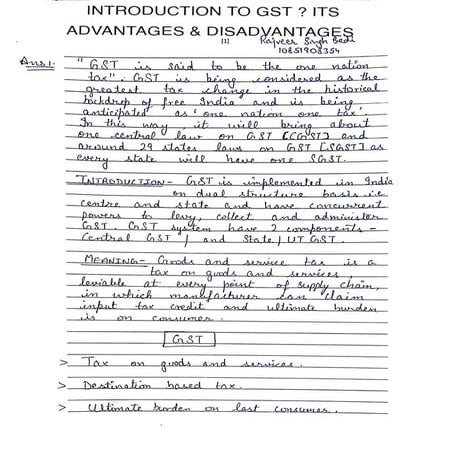 INTRODUCTION TO GST ? ITS
ADVANTAGES & DISADVANTAGES
[1] Rajveer Singh Bedi
10851908354
Ans1. "GST is said to be the one nation
tax". GST is being considered as the
greatest tax change in the historical
backdrop of free India and is being
anticipated as 'one nation one tax.
In this way, it will bring about
one central law on GST [CGST] and
around 29 states laws on GST [SGST] as
every state will have one SGST.
INTRODUCTION- GST is implemented in India
on dual structure basis i.e
centre and state and have concurrent
powers to levy, collect and administer
GST. GST system have 2 components-
Central GST / and State / UT GST.
MEANING- Goods and service tax is a
tax on goods and services
leviable at every point of supply chain,
in which manufacturer can claim
input tax credit and ultimate burden
is on consumer.
GST
> Tax on goods and services.
> Destination based tax.
> Ultimate burden on last consumer.